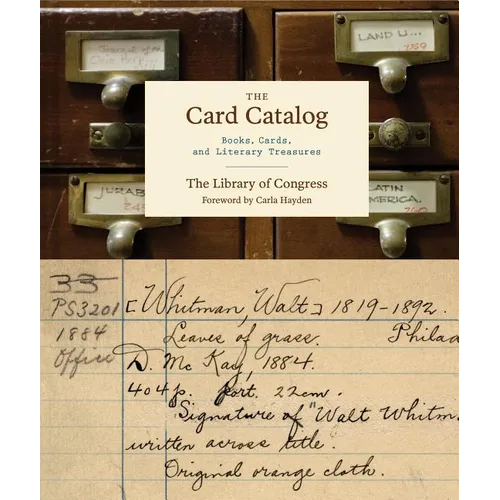 Journal of the
LAND U...
7759
THE
Card Catalog
Books, Cards,
and Literary Treasures
The Library of Congress
Foreword by Carla Hayden
JURAB
LATIN
AMERICA.
33
PS3201 [Whitman, Walt] 1819-1892.
1884 Leaves of grass. Philad
Office D. McKay, 1884.
404 p. port. 22cm.
Signature of "Walt Whitm
written across title.
Original orange cloth.